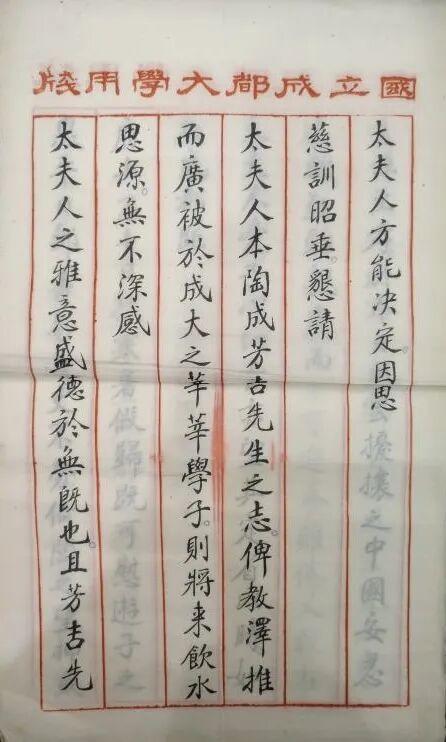 國立成都大學用牋
太夫人方能決定。因思
慈訓昭垂。懇請
太夫人本陶成芳吉先生之志。俾教澤推
而廣被於成大之莘莘學子。則將来飲水
思源。無不深感
太夫人之雅意盛德於無既也。且芳吉先